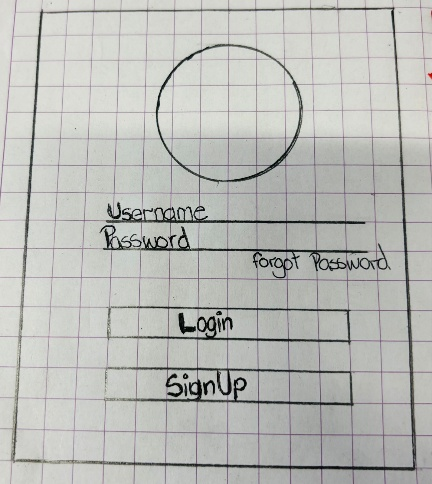 Username
Password
forgot Password
Login
SignUp